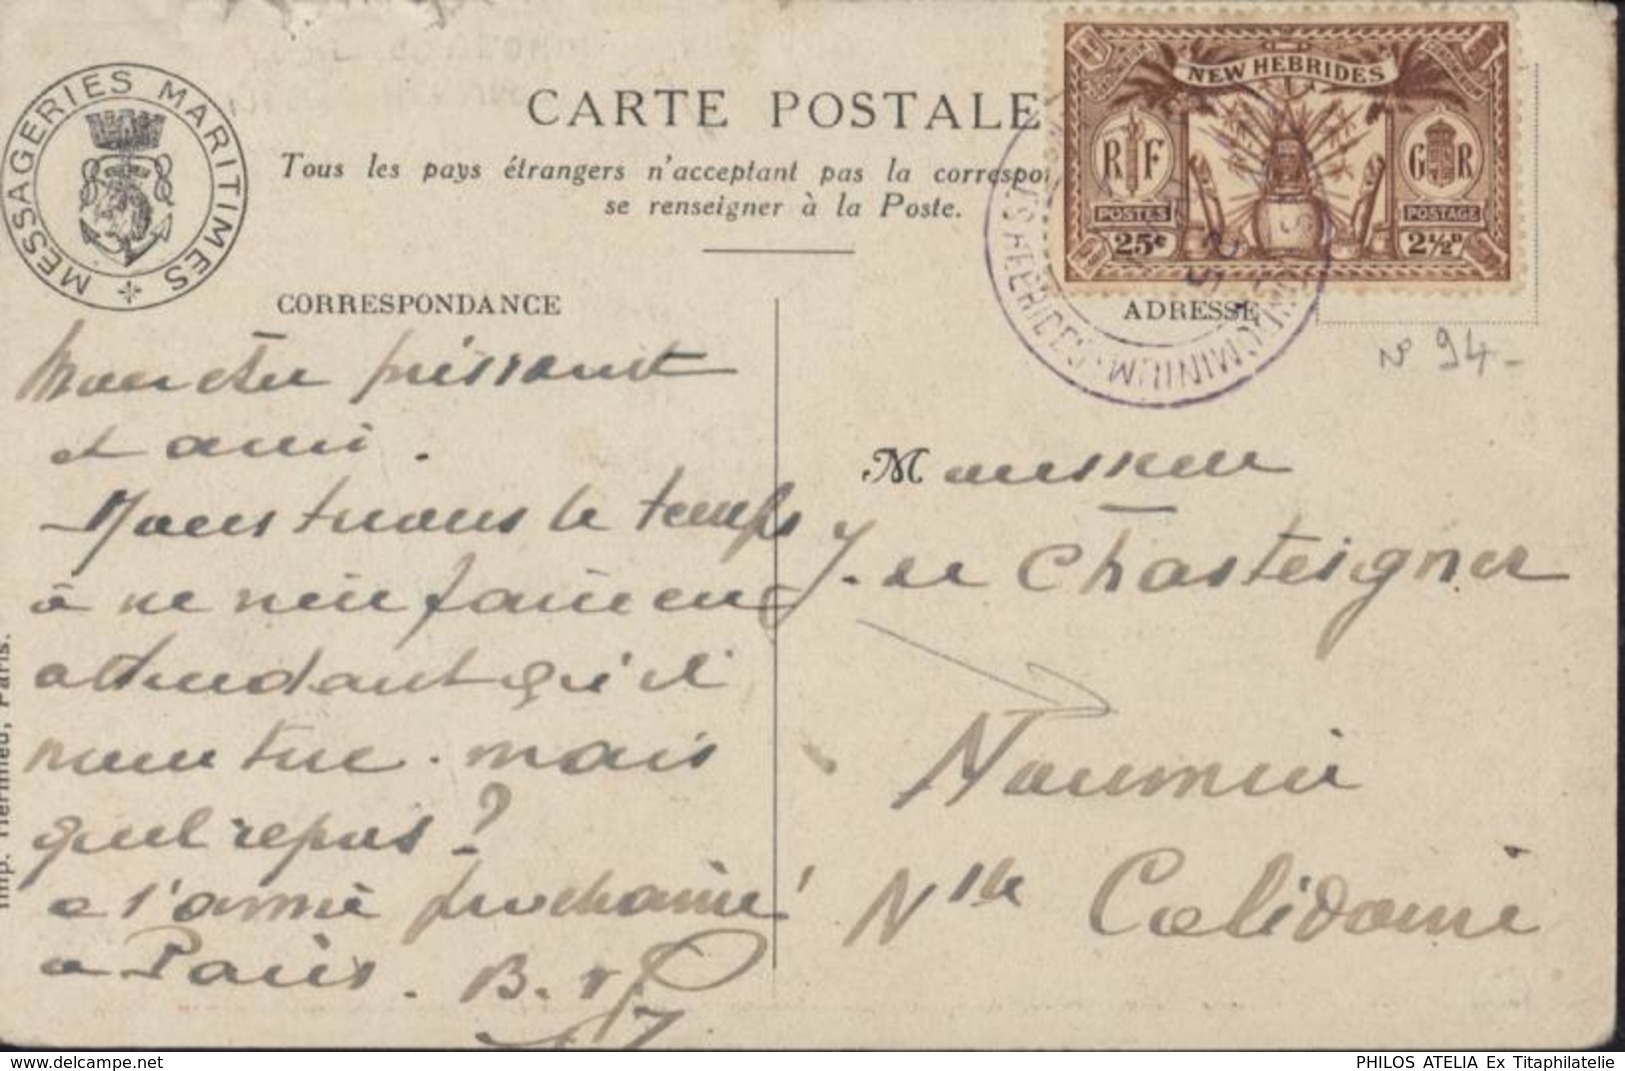 MESSAGERIES MARITIMES
CARTE POSTALE
Tous les pays étrangers n'acceptant pas la correspon
se renseigner à la Poste.
NEW HEBRIDES
RF
GR
POSTES
POSTAGE
25c
2½D
CORRESPONDANCE
ADRESSE
N° 94-
Mon cher
et ami.
Nous tuons le temps
à ne rien faire en
attendant qu'il
nous tue. mais
quel repos?
a l'année prochaine!
a Paris. B.
Monsieur
J. de Chasteigner
Nouméa
Nlle Calédonie
Imp. Hermieu, Paris.
PHILOS ATELIA Ex Titaphilatelie
www.delcampe.net